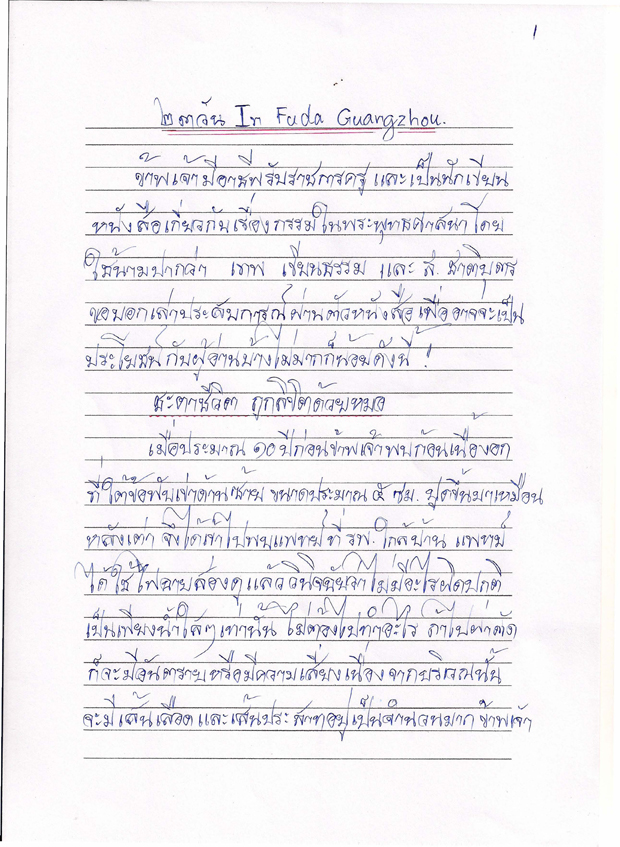 1
๒๓วัน In Fuda Guangzhou.
ข้าพเจ้ามีอาชีพรับราชการครู และเป็นนักเขียน
หนังสือเกี่ยวกับเรื่องกรรมในพระพุทธศาสนา โดย
ใช้นามปากกว่า เทพ เขียนธรรม และ ส. ชาติบุตร
ขอบอกเล่าประสบการณ์ผ่านตัวหนังสือ เพื่ออาจจะเป็น
ประโยชน์กับผู้อ่านบ้างไม่มากก็น้อยดังนี้ !
ชะตาชีวิต ถูกลิขิตด้วยหมอ
เมื่อประมาณ ๑๐ ปีก่อนข้าพเจ้าพบก้อนเนื้องอก
ที่ใต้ข้อพับเข่าด้านซ้าย ขนาดประมาณ ๕ ซม. ปูดขึ้นมาเหมือน
หลังเต่า จึงได้เข้าไปพบแพทย์ ที่ รพ. ใกล้บ้าน แพทย์
ได้ใช้ไฟฉายส่องดู แล้ววินิจฉัยว่าไม่มีอะไรผิดปกติ
เป็นเพียงน้ำใสๆ เท่านั้น ไม่ต้องไปทำอะไร ถ้าไปผ่าตัด
ก็จะมีอันตรายหรือมีความเสี่ยงเนื่องจากบริเวณนั้น
จะมีเส้นเลือด และเส้นประสาทอยู่เป็นจำนวนมาก ข้าพเจ้า